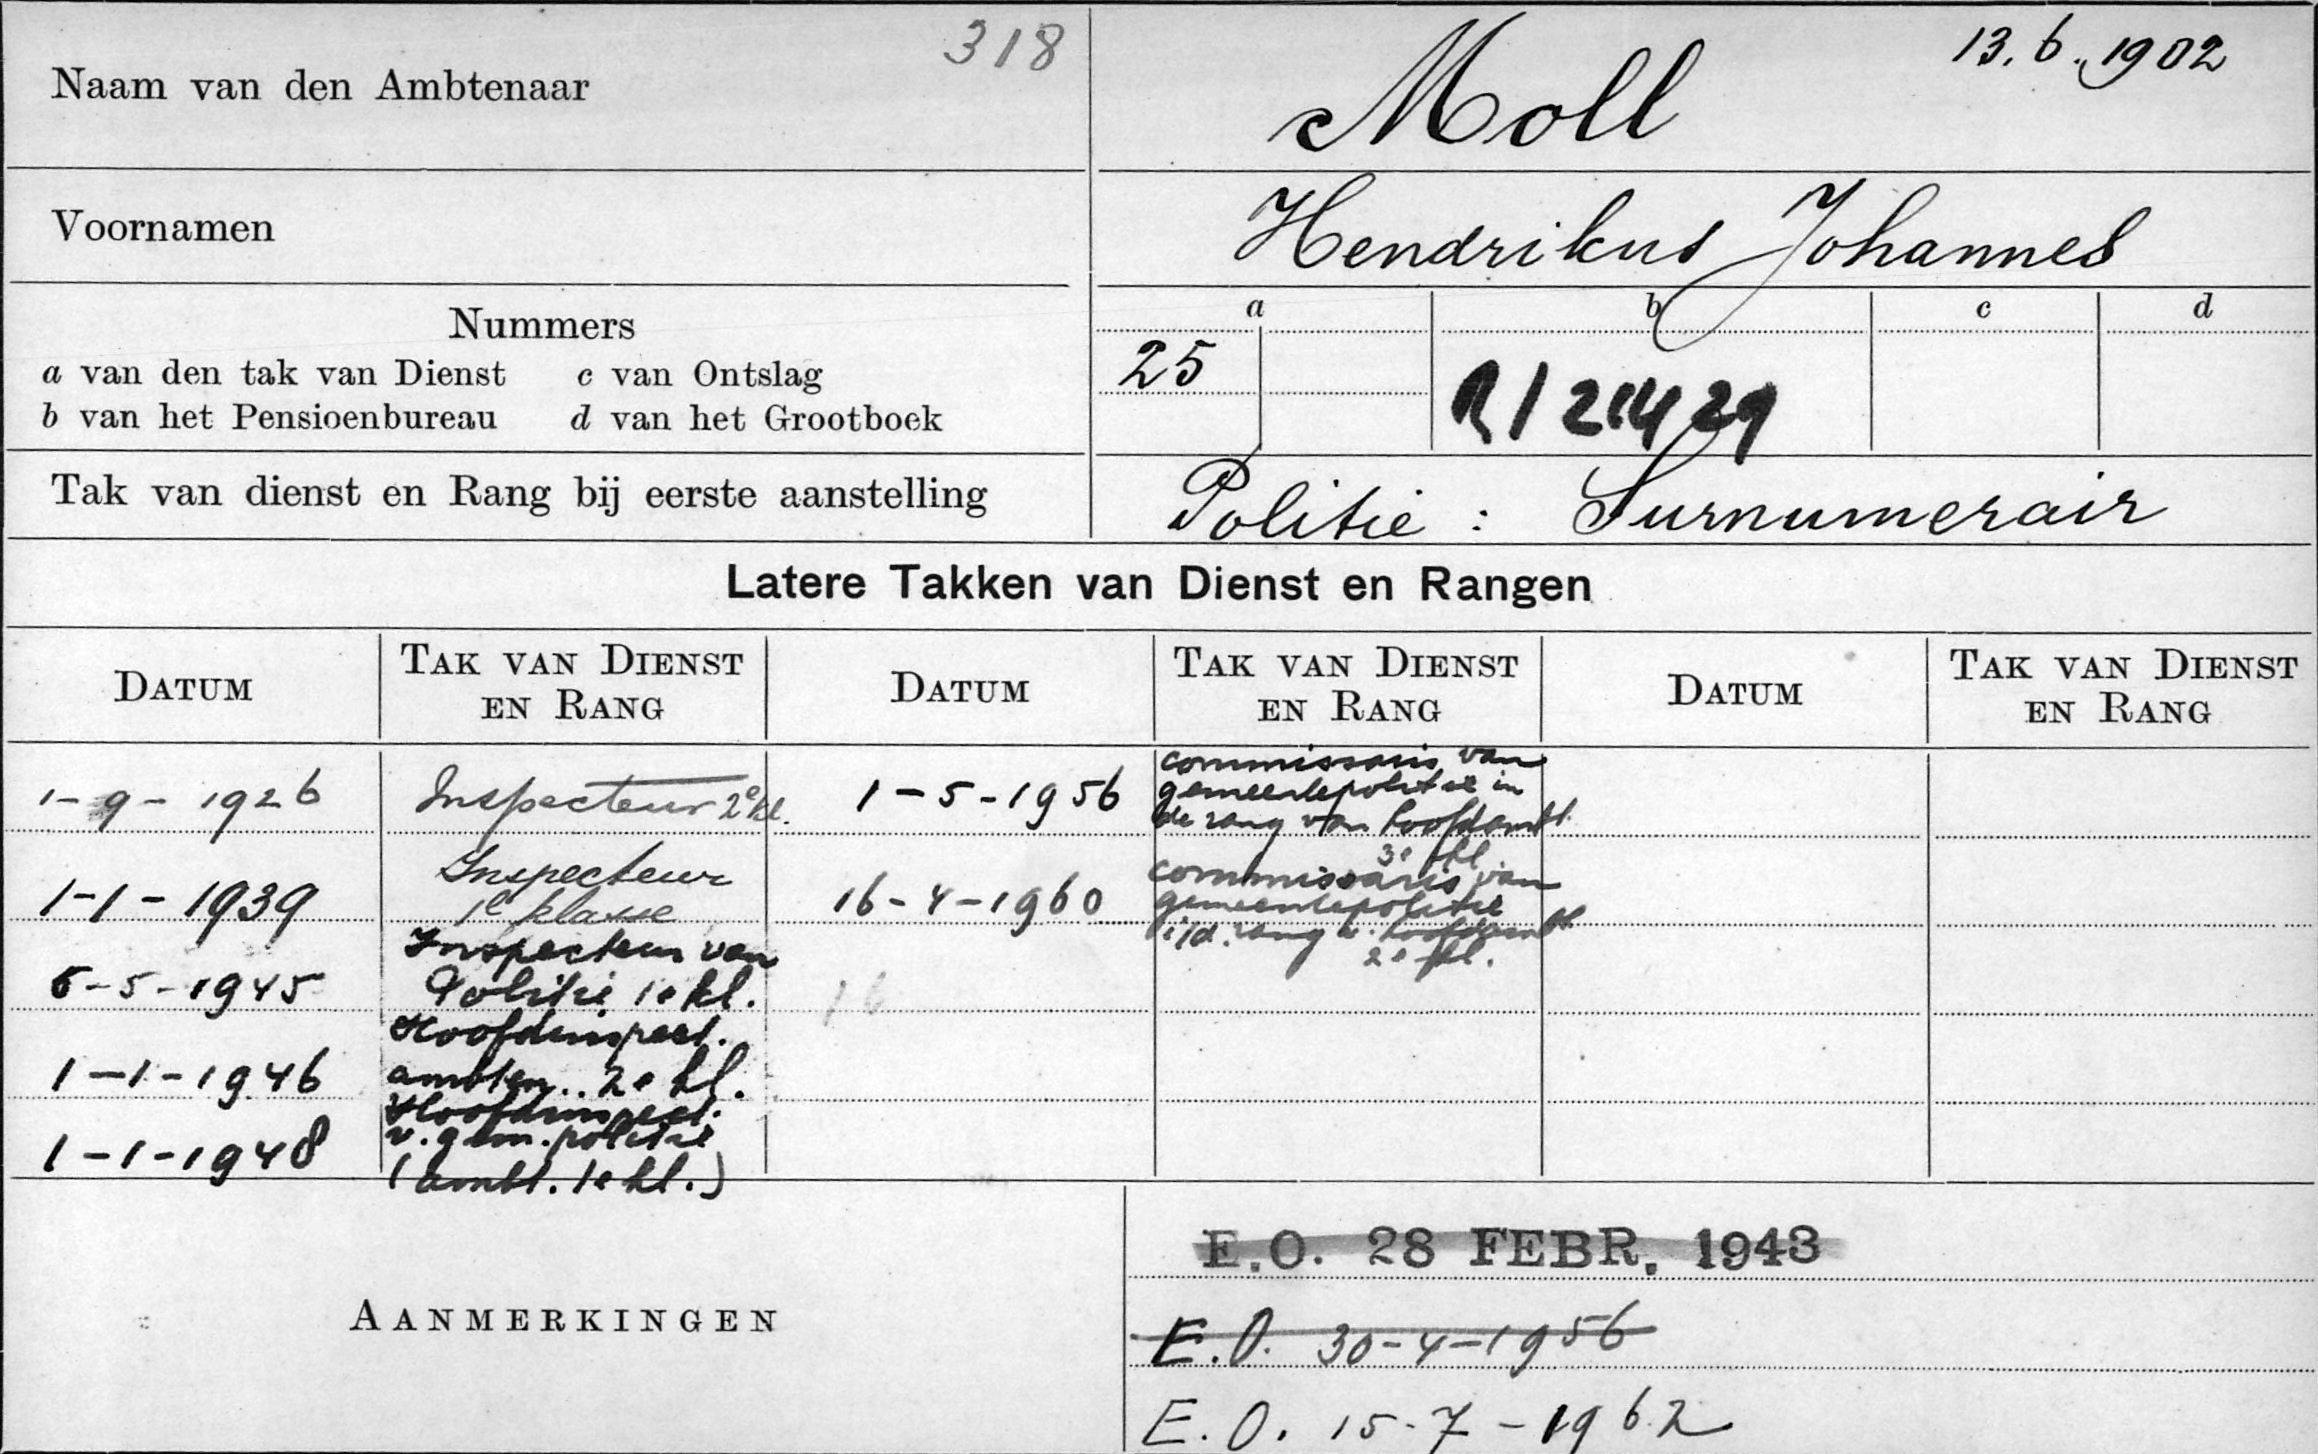 318
Naam van den Ambtenaar
Moll
13.6.1902
Voornamen
Hendrikus Johannes
Nummers
a van den tak van Dienst c van Ontslag
b van het Pensioenbureau d van het Grootboek
a b c d
25
R/21429
Tak van dienst en Rang bij eerste aanstelling
Politie : Surnumerair
Latere Takken van Dienst en Rangen
DATUM
TAK VAN DIENST
EN RANG
DATUM
TAK VAN DIENST
EN RANG
DATUM
TAK VAN DIENST
EN RANG
1-9-1926
Inspecteur 2e kl.
1-1-1939
Inspecteur
1e klasse
5-5-1945
Inspecteur van
Politie 1e kl.
1-1-1946
Hoofdinspect.
ambten.. 2e kl.
1-1-1948
Hoofdinspect.
v. gem. politie
(ambt. 1e kl.)
1-5-1956
commissaris van
gemeentepolitie in
de rang van hoofdambt.
3e kl.
16-4-1960
commissaris van
gemeentepolitie
i/d. rang v. hoofdambt
2e kl.
16
AANMERKINGEN
E.O. 28 FEBR. 1943
E.O. 30-4-1956
E.O. 15-7-1962